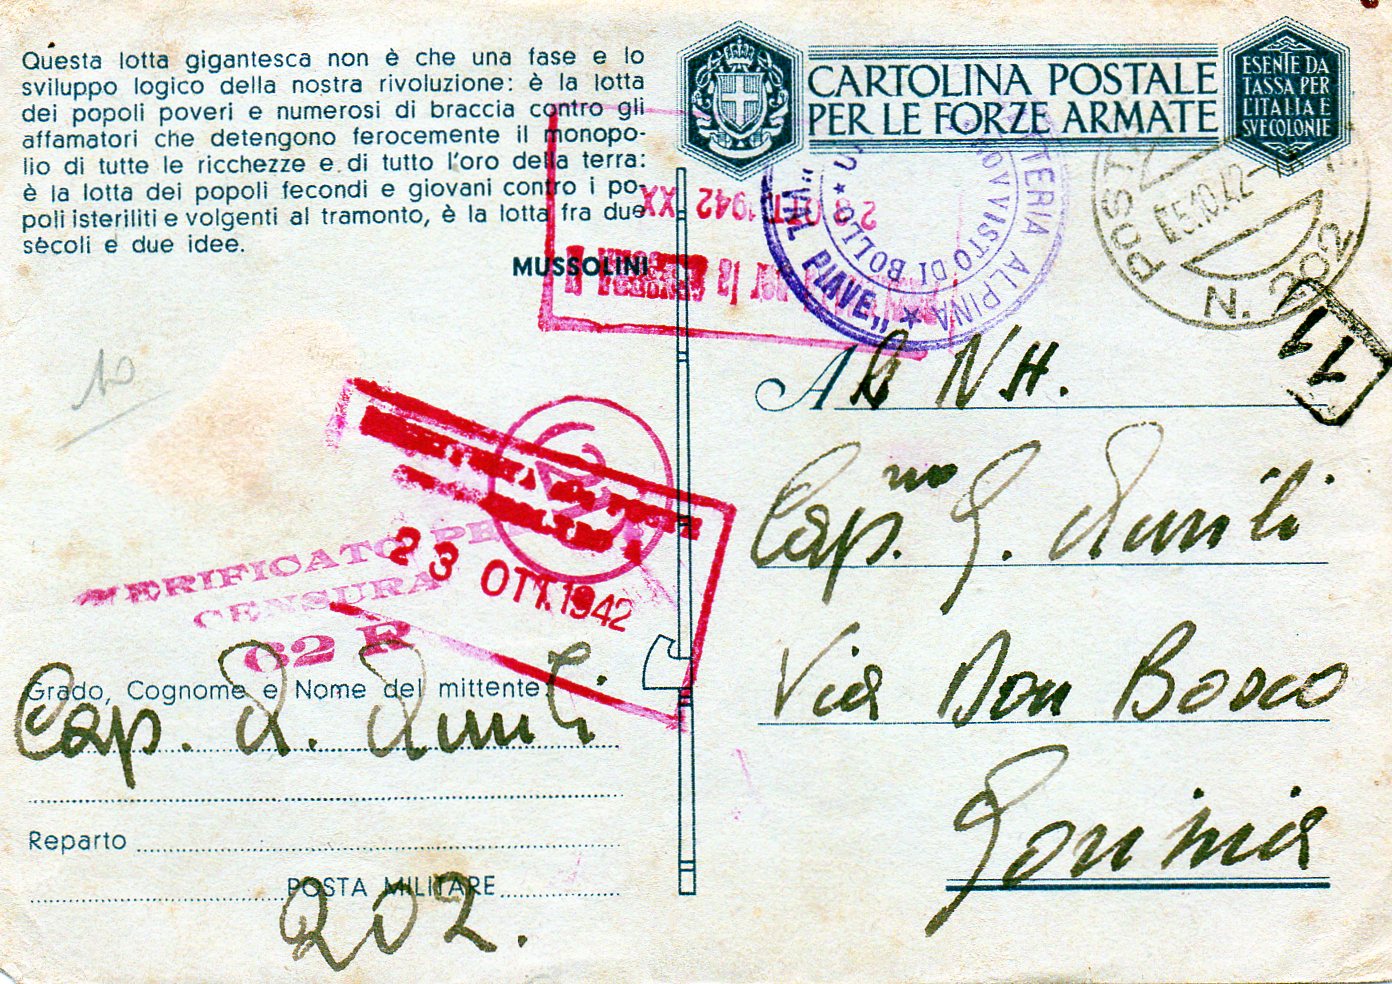 Questa lotta gigantesca non è che una fase e lo
sviluppo logico della nostra rivoluzione: è la lotta
dei popoli poveri e numerosi di braccia contro gli
affamatori che detengono ferocemente il monopo-
lio di tutte le ricchezze e di tutto l'oro della terra:
è la lotta dei popoli fecondi e giovani contro i po-
poli isteriliti e volgenti al tramonto, è la lotta fra due
sècoli e due idee.
MUSSOLINI
CARTOLINA POSTALE
PER LE FORZE ARMATE
ESENTE DA
TASSA PER
L'ITALIA E
SVE COLONIE
TERIA ALPINA
"VAL PIAVE"
OVVISTO DI BOLLO
POSTA
05.10.42
N. 202
11
28 OTT 1942 XX
per la
10
23 OTT. 1942
VERIFICATO PE
CENSURA
62 R
Al NH.
Cap.no G.
Via Don Bosco
Gorizia
Grado, Cognome e Nome del mittente:
Cap.
Reparto
POSTA MILITARE
202.